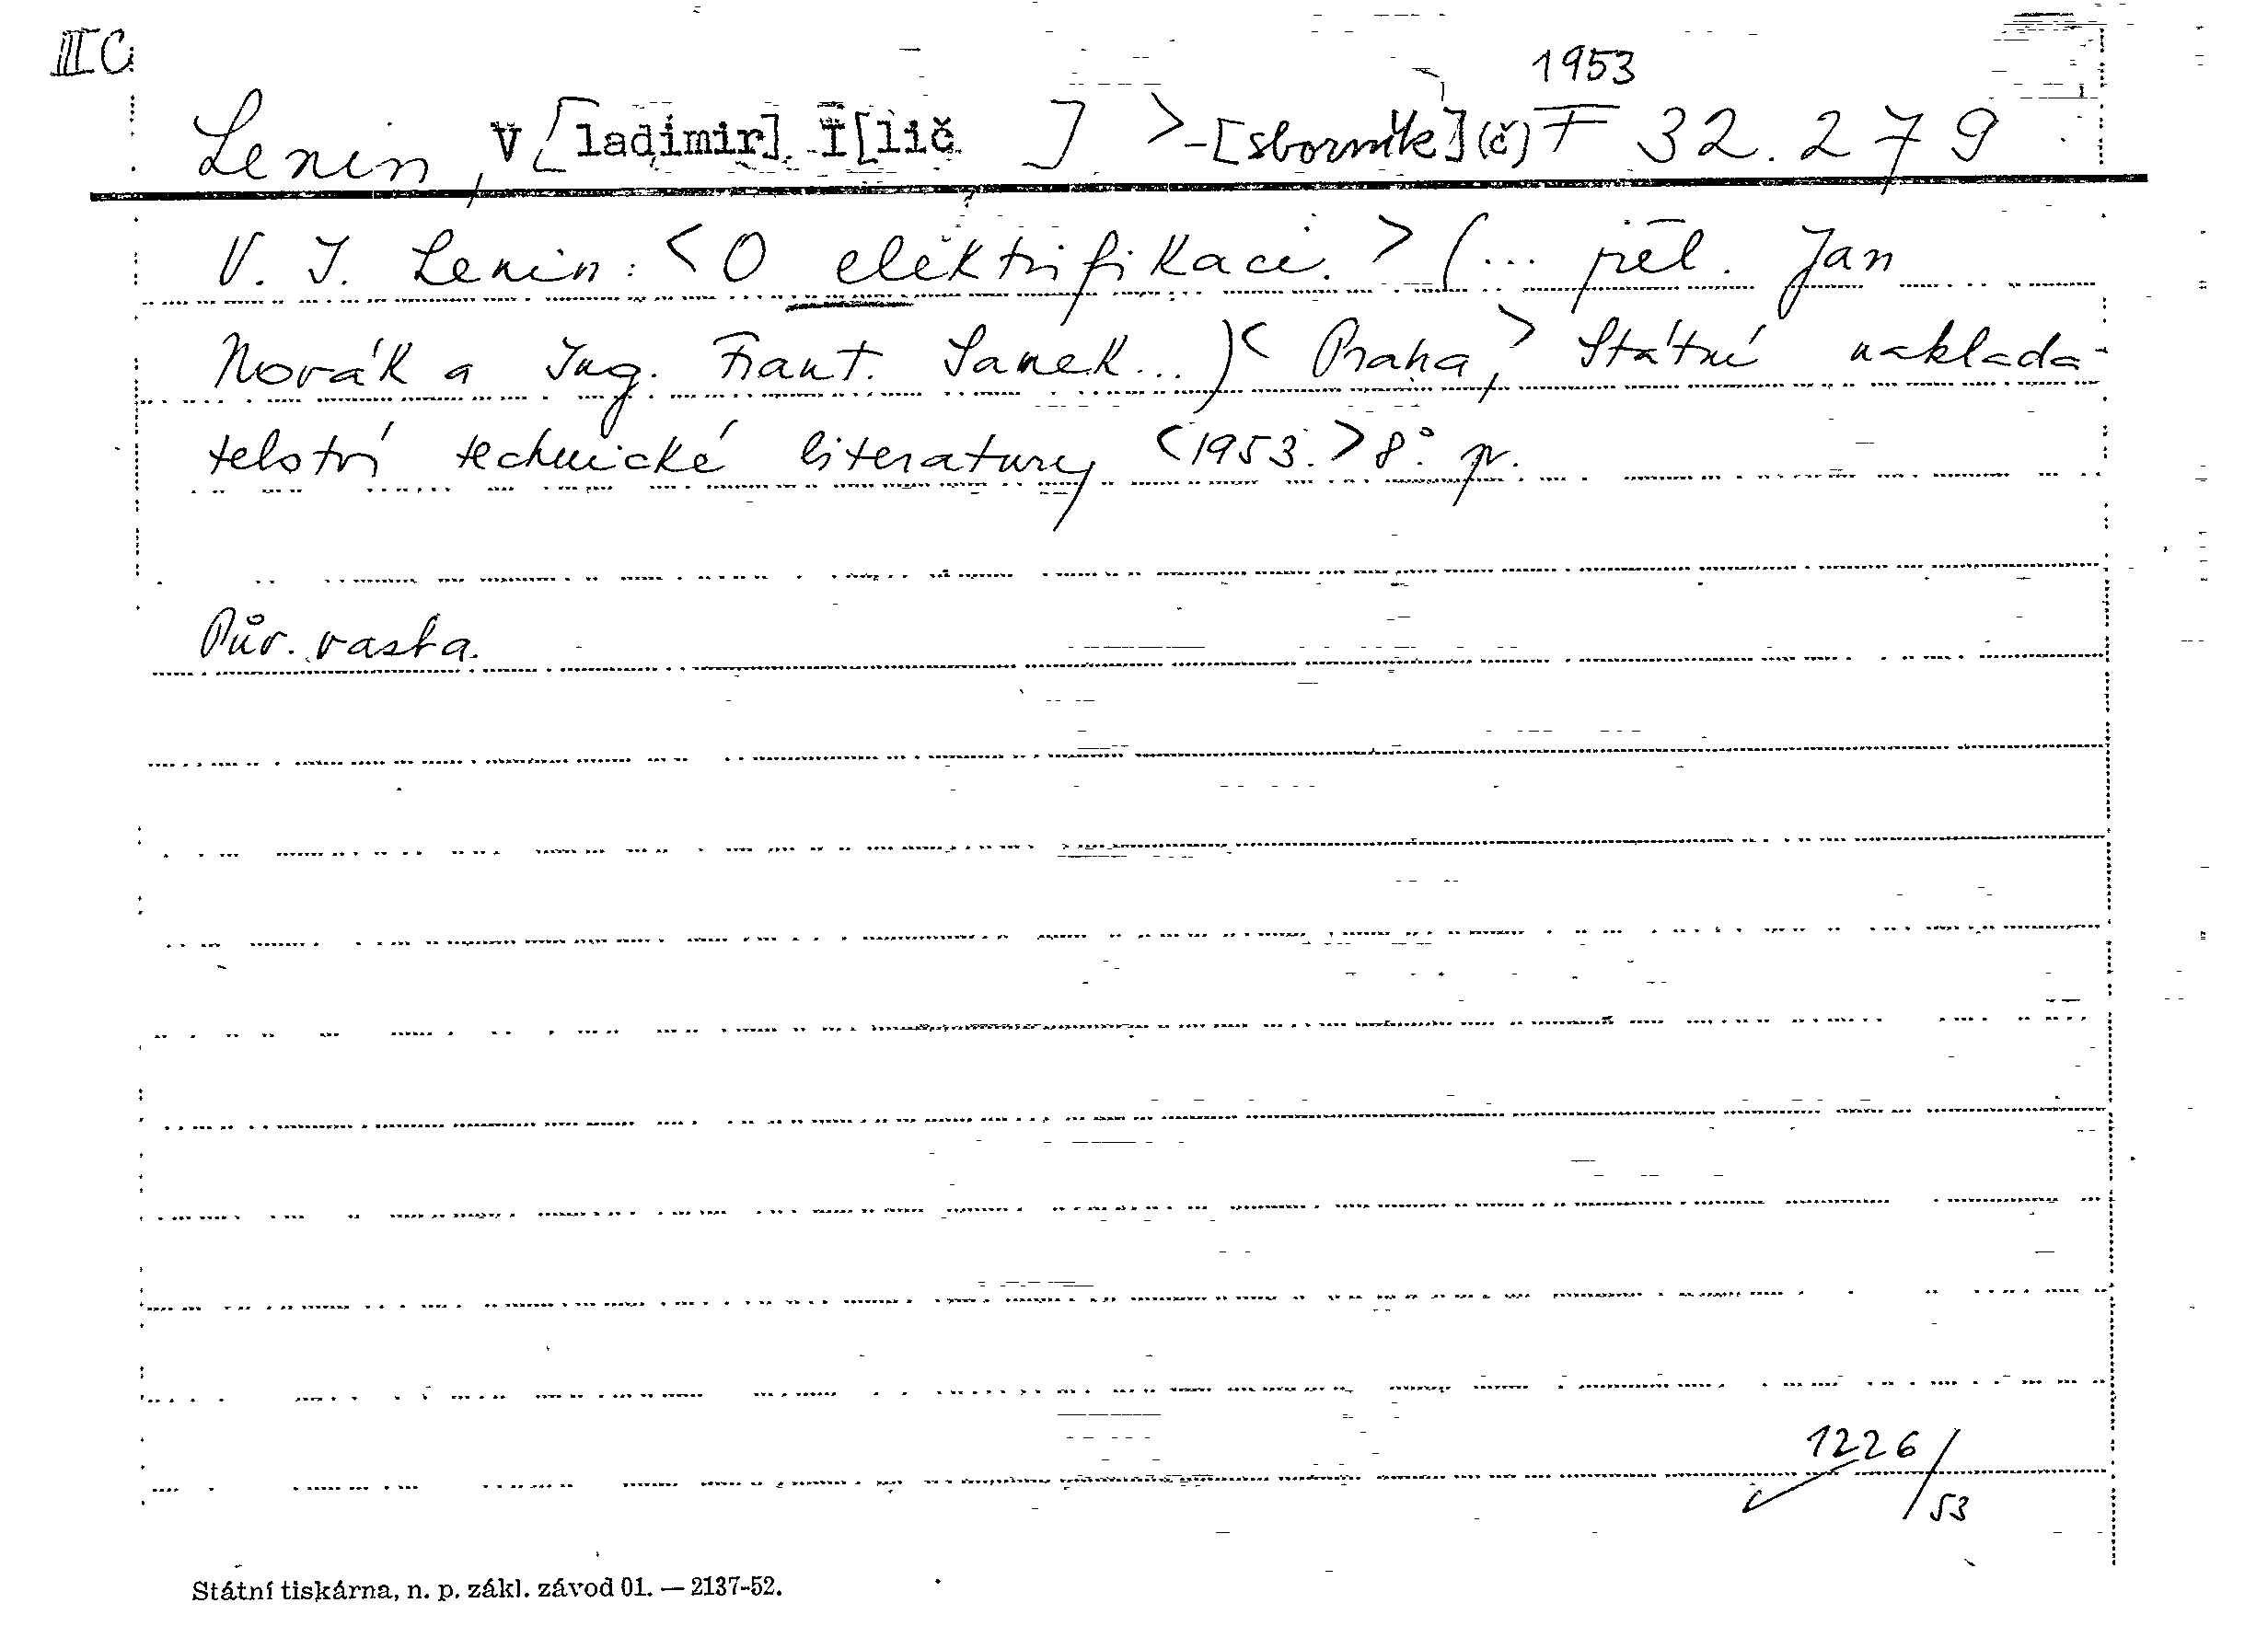 III C
1953
Lenin, V[ladimir] I[lič ] > -[sborník](č) F 32.279
V. I. Lenin: <O elektrifikaci.> (... přel. Jan
Novák a Ing. Frant. Samek...)< Praha,> Státní naklada-
telství technické literatury <1953.> 8°. pv.
Pův. vazba.
1226/53
Státní tiskárna, n. p. zákl. závod 01. — 2137-52.